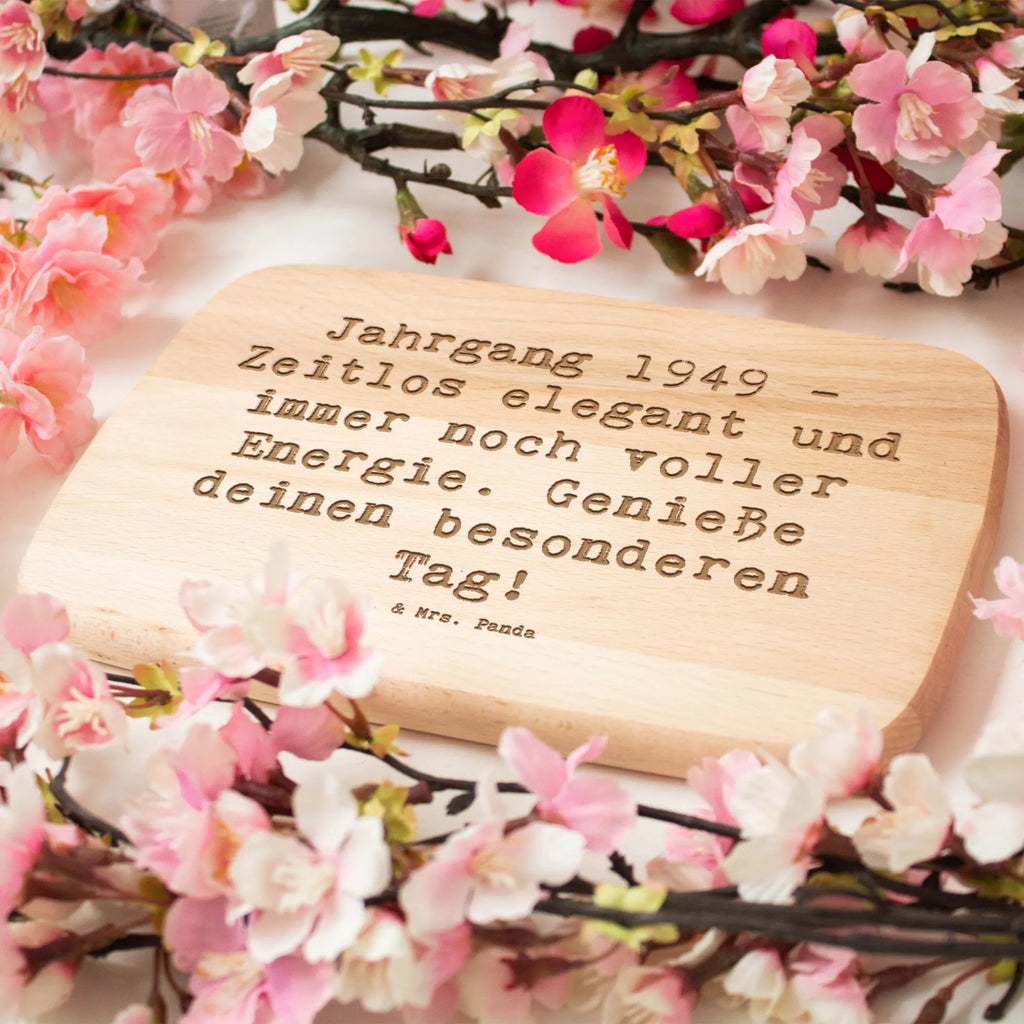 Jahrgang 1949 –
Zeitlos elegant und
immer noch voller
Energie. Genieße
deinen besonderen
Tag!
& Mrs. Panda